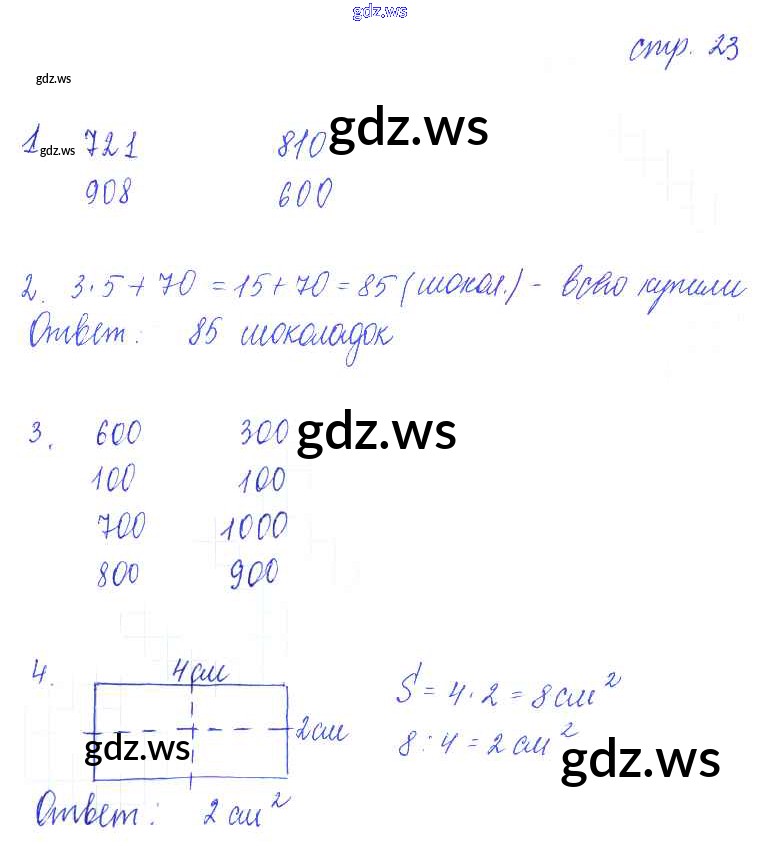 gdz.ws
стр. 23
gdz.ws
1. 721 810 gdz.ws
gdz.ws
908 600
2. 3·5+70=15+70=85(шокол.) - всего купили
Ответ: 85 шоколадок
3. 600 300 gdz.ws
100 100
700 1000
800 900
4. 4 см
S = 4·2 = 8 см²
2 см
8:4 = 2 см²
gdz.ws
gdz.ws
Ответ: 2 см²